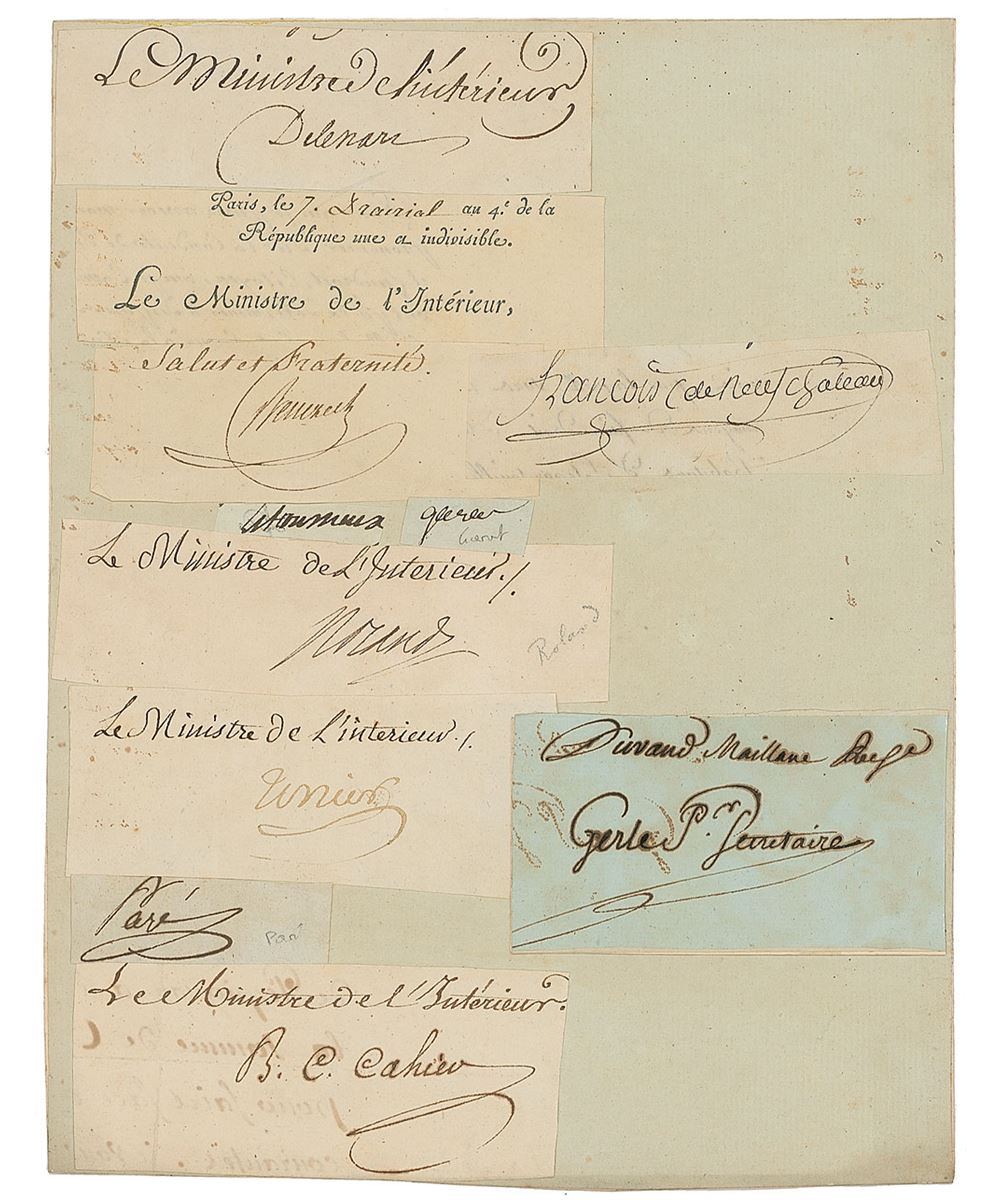 Le Ministre de l'intérieur
Delessart
Paris, le 7. Prairial an 4.e de la
République une et indivisible.
Le Ministre de l'Intérieur,
Salut et Fraternité.
Benezech
François (de Neufchâteau)
Letourneux
garat
Garat
Le Ministre de L'Interieur./.
Roland
Roland
Le Ministre de L'interieur./.
Durand Maillane
Gerle P.r Secretaire
Paré
Paré
Le Ministre de l'Intérieur.
B. C. Cahier